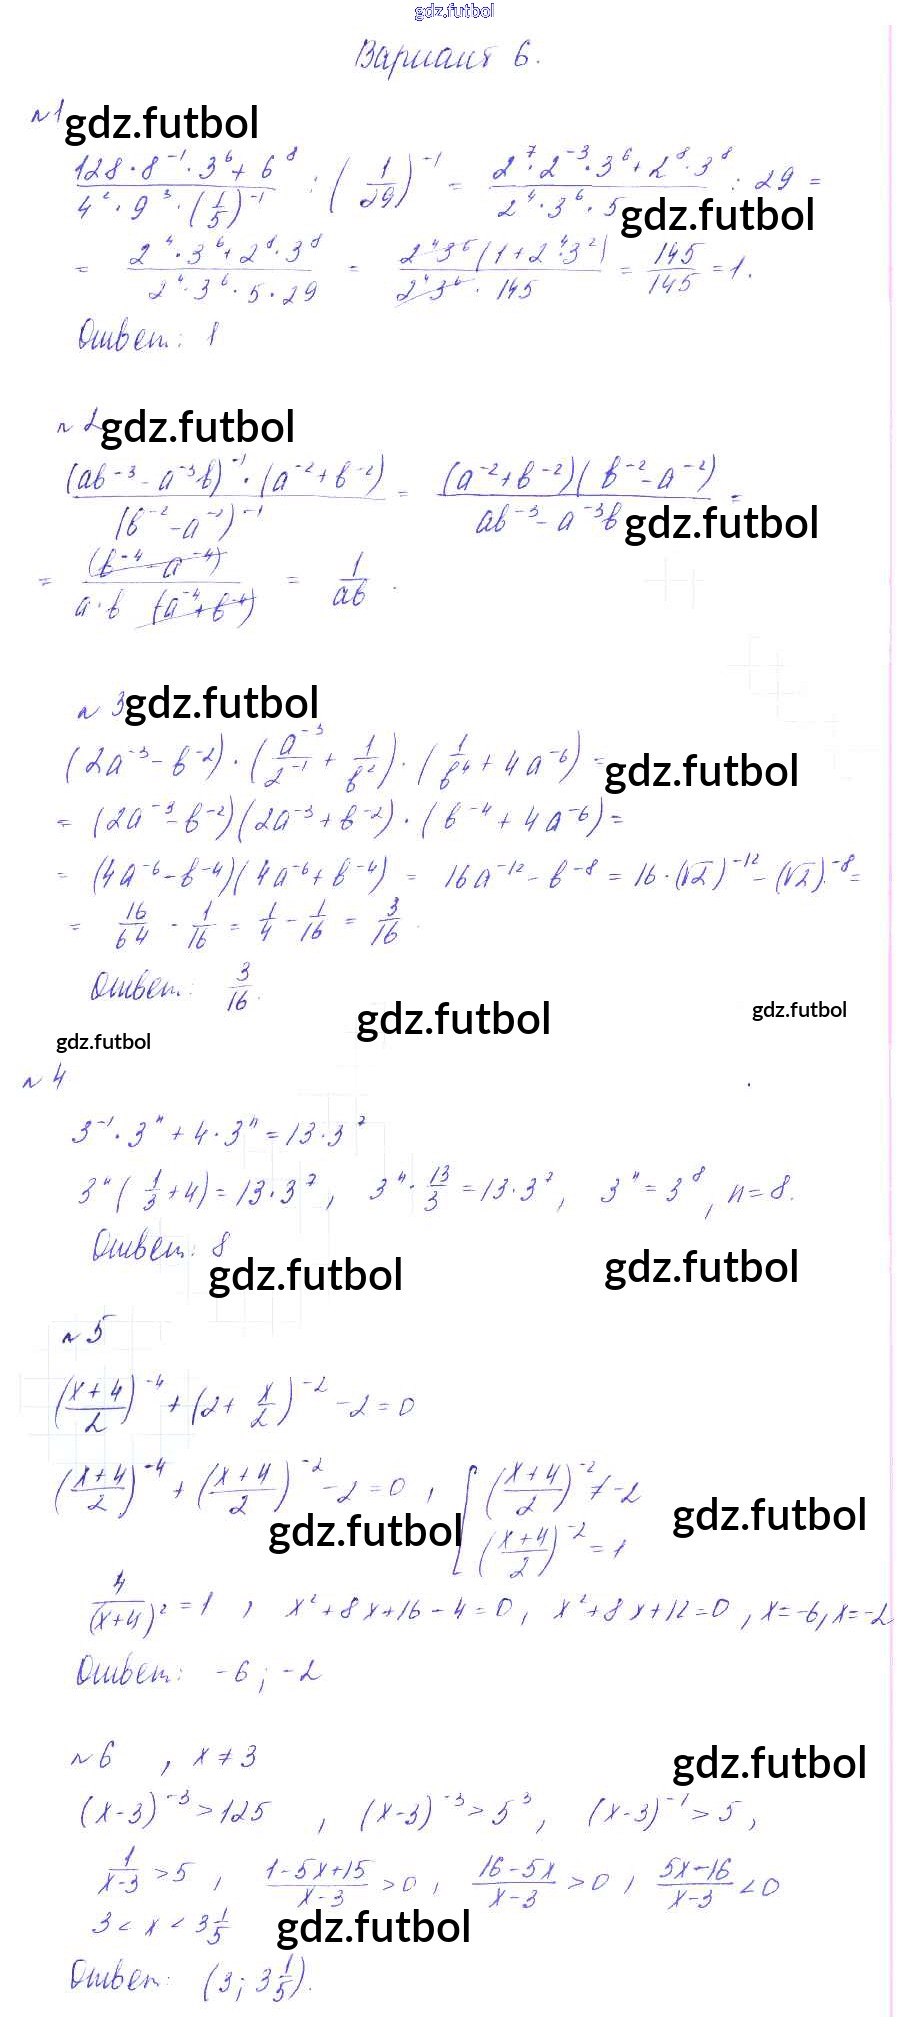 gdz.futbol
Вариант 6.
№1 gdz.futbol
(128·8⁻¹·3⁶+6⁸)/(4²·9³·(1/5)⁻¹) : (1/29)⁻¹ = (2⁷·2⁻³·3⁶+2⁸·3⁸)/(2⁴·3⁶·5) : 29 =
gdz.futbol
= (2⁴·3⁶+2⁸·3⁸)/(2⁴·3⁶·5·29) = (2⁴3⁶(1+2⁴·3²))/(2⁴3⁶·145) = 145/145 = 1.
Ответ: 1
№2 gdz.futbol
((ab⁻³-a⁻³b)⁻¹·(a⁻²+b⁻²))/(b⁻²-a⁻²)⁻¹ = ((a⁻²+b⁻²)(b⁻²-a⁻²))/(ab⁻³-a⁻³b) =
gdz.futbol
= (b⁻⁴-a⁻⁴)/(a·b(a⁻⁴+b⁻⁴)) = 1/ab.
№3 gdz.futbol
(2a⁻³-b⁻²)·(a⁻³/2⁻¹+1/b²)·(1/b⁴+4a⁻⁶) =
gdz.futbol
= (2a⁻³-b⁻²)(2a⁻³+b⁻²)·(b⁻⁴+4a⁻⁶) =
= (4a⁻⁶-b⁻⁴)(4a⁻⁶+b⁻⁴) = 16a⁻¹²-b⁻⁸ = 16·(√2)⁻¹²-(√2)⁻⁸ =
= 16/64 - 1/16 = 1/4 - 1/16 = 3/16.
Ответ: 3/16.
gdz.futbol
gdz.futbol
gdz.futbol
№4
3⁻¹·3ⁿ+4·3ⁿ=13·3⁷
3ⁿ(1/3+4)=13·3⁷, 3ⁿ·13/3=13·3⁷, 3ⁿ=3⁸, n=8.
Ответ: 8
gdz.futbol
gdz.futbol
№5
((x+4)/2)⁻⁴+(2+x/2)⁻²-2=0
((x+4)/2)⁻⁴+((x+4)/2)⁻²-2=0, [((x+4)/2)⁻²≠-2
((x+4)/2)⁻²=1
gdz.futbol
gdz.futbol
4/(x+4)²=1, x²+8x+16-4=0, x²+8x+12=0, x=-6, x=-2
Ответ: -6; -2
№6, x≠3
gdz.futbol
(x-3)⁻³>125, (x-3)⁻³>5³, (x-3)⁻¹>5,
1/(x-3)>5, (1-5x+15)/(x-3)>0, (16-5x)/(x-3)>0, (5x-16)/(x-3)<0
3<x<3 1/5
gdz.futbol
Ответ: (3; 3 1/5).